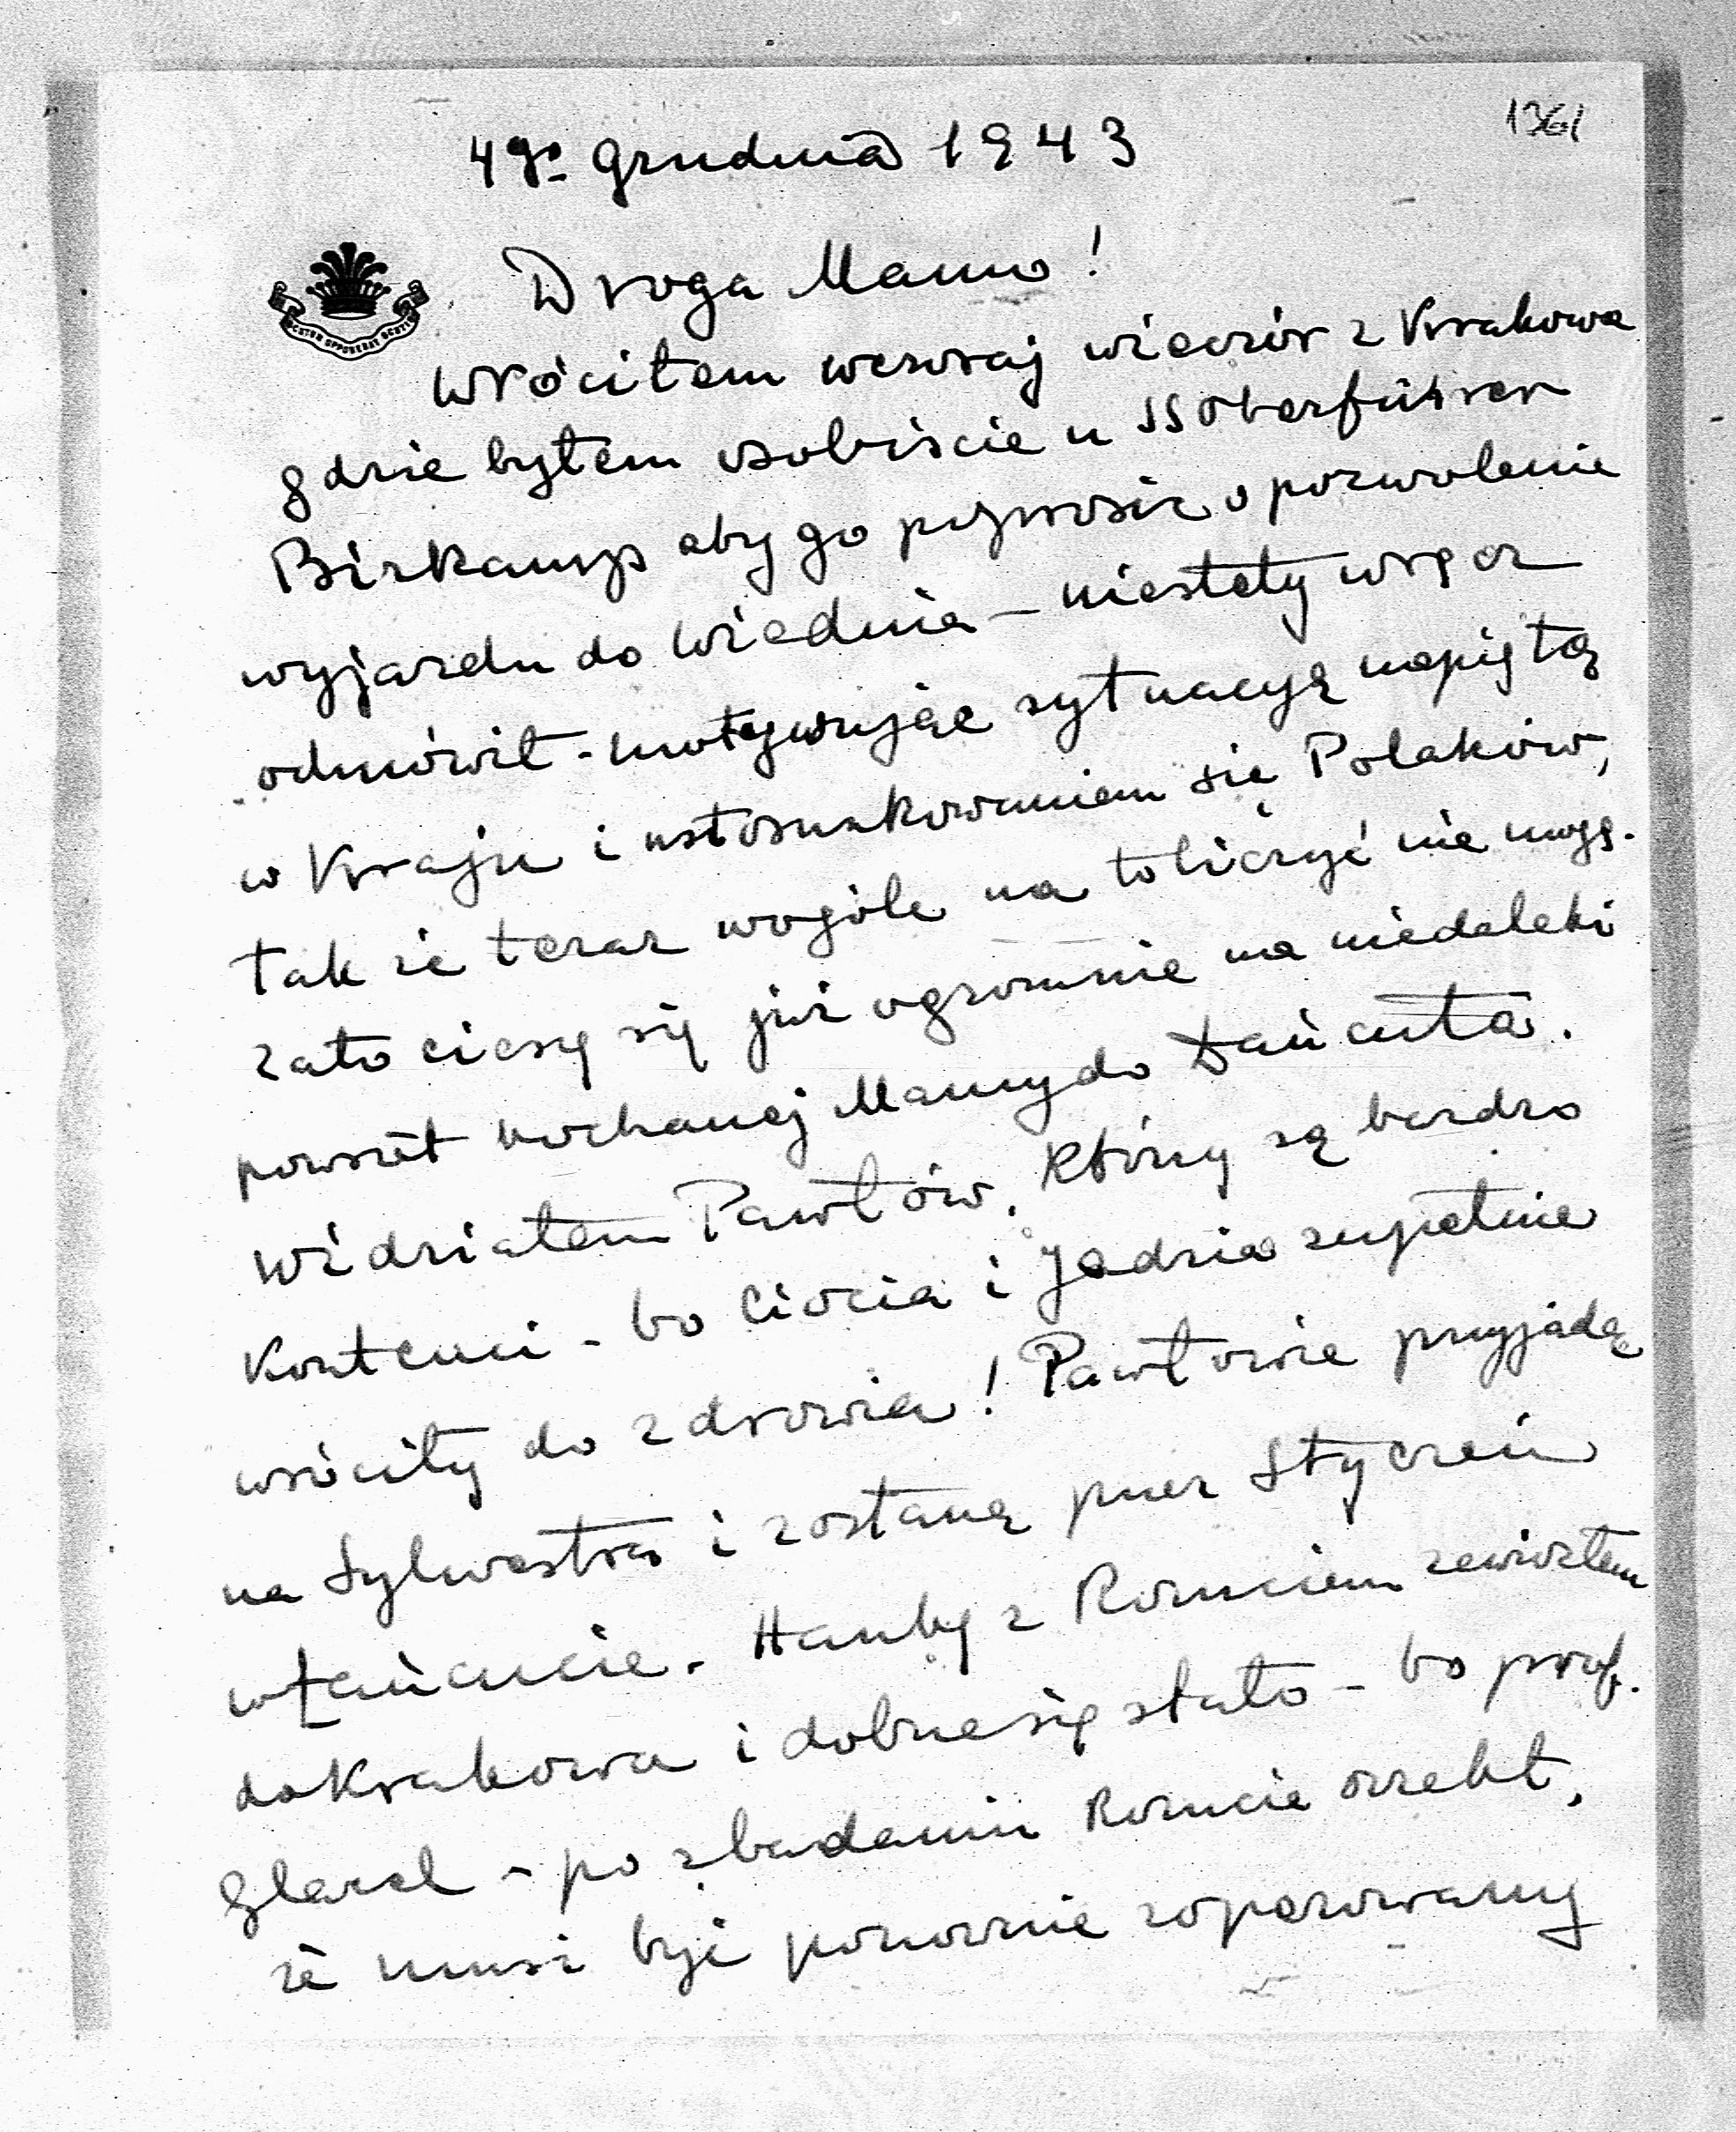 1361
4go grudnia 1943
Droga Mamo!
SCUTUM OPPONEBAT SCUTIS
Wróciłem wczoraj wieczór z Krakowa
gdzie byłem osobiście u SSOberführer
Birkamp aby go poprosić o pozwolenie
wyjazdu do Wiednia – niestety wręcz
odmówił - motywując sytuacyą napiętą
w Kraju i ustosunkowaniem się Polaków,
tak że teraz wogóle na to liczyć nie mogę.
zato cieszę się już ogromnie na niedaleki
powrót kochanej Mamy do Łańcuta.
Widziałem Pawłów, którzy są bardzo
kontenci - bo Ciocia i Jadzia zupełnie
wróciły do zdrowia! Pawłowie przyjadą
na Sylwestra i zostaną przez Styczeń
w Łańcucie. Hanby z Romciem zawiozłem
do Krakowa i dobrze się stało - bo prof.
Glatzel - po zbadaniu Romcia orzekł,
że musi być ponownie zoperowany